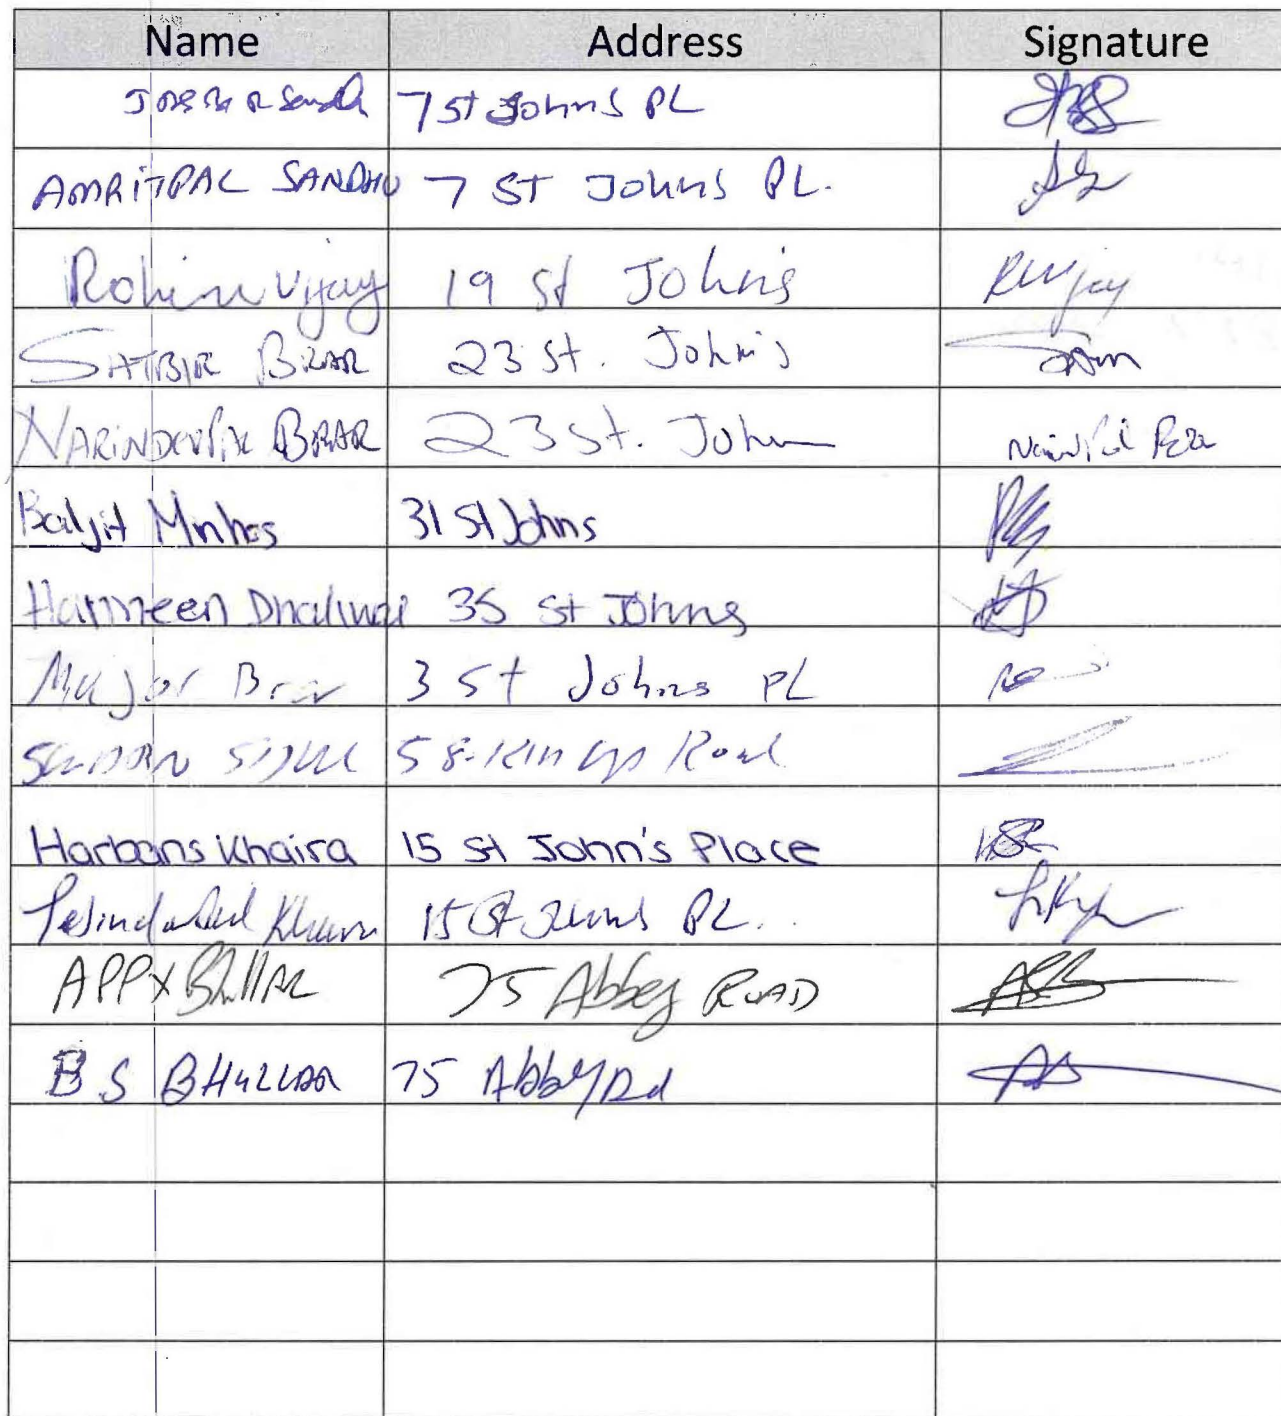 Name Address Signature
7 St Johns PL
AMRITPAL SANDHU 7 ST Johns PL.
Rohin Vijay 19 St John's RVijay
SATBIR BRAR 23 St. John's
BRAR 23 St. John
Baljit Minhas 31 St Johns
Harmeen Dhaliwal 35 St Johns
Major Brar 3 St Johns PL
58 Kings Road
Harbans Khaira 15 St John's Place
15 St Johns PL.
Bhullar 75 Abbey ROAD
B S BHULLAR 75 Abbey Rd